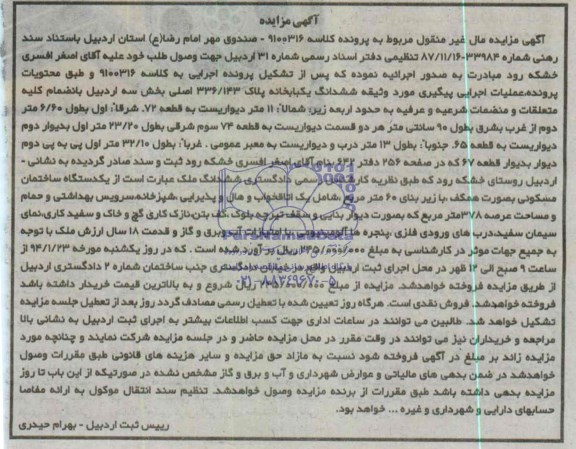 آگهی مزایده
آگهی مزایده مال غیر منقول مربوط به پرونده کلاسه ۹۱۰۰۳۱۶ - صندوق مهر امام رضا(ع) استان اردبیل باستناد سند
رهنی شماره ۳۳۹۸۴-۸۷/۱۱/۱۶ تنظیمی دفتر اسناد رسمی شماره ۳۱ اردبیل جهت وصول طلب خود علیه آقای اصغر افسری
خشکه رود مبادرت به صدور اجرائیه نموده که پس از تشکیل پرونده اجرایی به کلاسه ۹۱۰۰۳۱۶ و طبق محتویات
پرونده،عملیات اجرایی پیگیری مورد وثیقه ششدانگ یکبابخانه پلاک ۳۳۶/۱۴۳ اصلی بخش سه اردبیل بانضمام کلیه
متعلقات و منضمات شرعیه و عرفیه به حدود اربعه زیر: شمالاً: ۱۱ متر دیواریست به قطعه ۷۲. شرقاً: اول بطول ۶/۶۰ متر
دوم از غرب بشرق بطول ۹۰ سانتی متر هر دو قسمت دیواریست به قطعه ۷۴ سوم شرقی بطول ۲۳/۲۰ متر اول بدیوار دوم
دیواریست به قطعه ۶۵. جنوباً: بطول ۱۳ متر درب و دیواریست به معبر عمومی . غرباً: بطول ۳۲/۱۰ متر اول پی به پی دوم
دیوار بدیوار قطعه ۶۷ که در صفحه ۲۵۶ دفتر ۶۴۲ بنام آقای اصغر افسری خشکه رود ثبت و سند صادر گردیده به نشانی -
اردبیل روستای خشکه رود که طبق نظریه کارشناس رسمی دادگستری ششدانگ ملک عبارت است از یکدستگاه ساختمان
مسکونی بصورت همکف ،با زیر بنای ۶۰ متر مربع شامل یک اتاقخواب و هال و پذیرایی ،شپزخانه،سرویس بهداشتی و حمام
و مساحت عرصه ۳۷۸متر مربع که بصورت دیوار بنایی و سقف تیرچه بلوک کف بتن،نازک کاری گچ و خاک و سفید کاری،نمای
سیمان سفید،درب های ورودی فلزی ،پنجره ها آلومینیومی با امتیازات آب و برق و گاز و قدمت ۱۸ سال ارزش ملک با توجه
به جمیع جهات موثر در کارشناسی به مبلغ ریال برآورد شده است . که در روز یکشنبه مورخه ۹۴/۱/۲۳ از
ساعت ۹ صبح الی ۱۲ ظهر در محل اجرای ثبت اردبیل واقع در خیابان دادگستری جنب ساختمان شماره ۲ دادگستری اردبیل
از طریق مزایده فروخته خواهدشد. مزایده از مبلغ ریال شروع و به بالاترین قیمت خریدار داشته باشد
فروخته خواهدشد. فروش نقدی است. هرگاه روز تعیین شده با تعطیل رسمی مصادف گردد روز بعد از تعطیل جلسه مزایده
تشکیل خواهد شد. طالبین می توانند در ساعات اداری جهت کسب اطلاعات بیشتر به اجرای ثبت اردبیل به نشانی بالا
مراجعه و خریداران نیز می توانند در وقت مقرر در محل مزایده حاضر و در جلسه مزایده شرکت نمایند و چنانچه مورد
مزایده زائد بر مبلغ در آگهی فروخته شود نسبت به مازاد حق مزایده و سایر هزینه های قانونی طبق مقررات وصول
خواهدشد در ضمن بدهی های مالیاتی و عوارض شهرداری و آب و برق و گاز مشخص نشده در صورتیکه از این باب تا روز
مزایده بدهی داشته باشد طبق مقررات از برنده مزایده وصول خواهدشد. تنظیم سند انتقال موکول به ارائه مفاصا
حسابهای دارایی و شهرداری و غیره ... خواهد بود.
رییس ثبت اردبیل - بهرام حیدری
ParsNamadData
۰۲۱-۸۸۳۴۹۶۷۰-۵